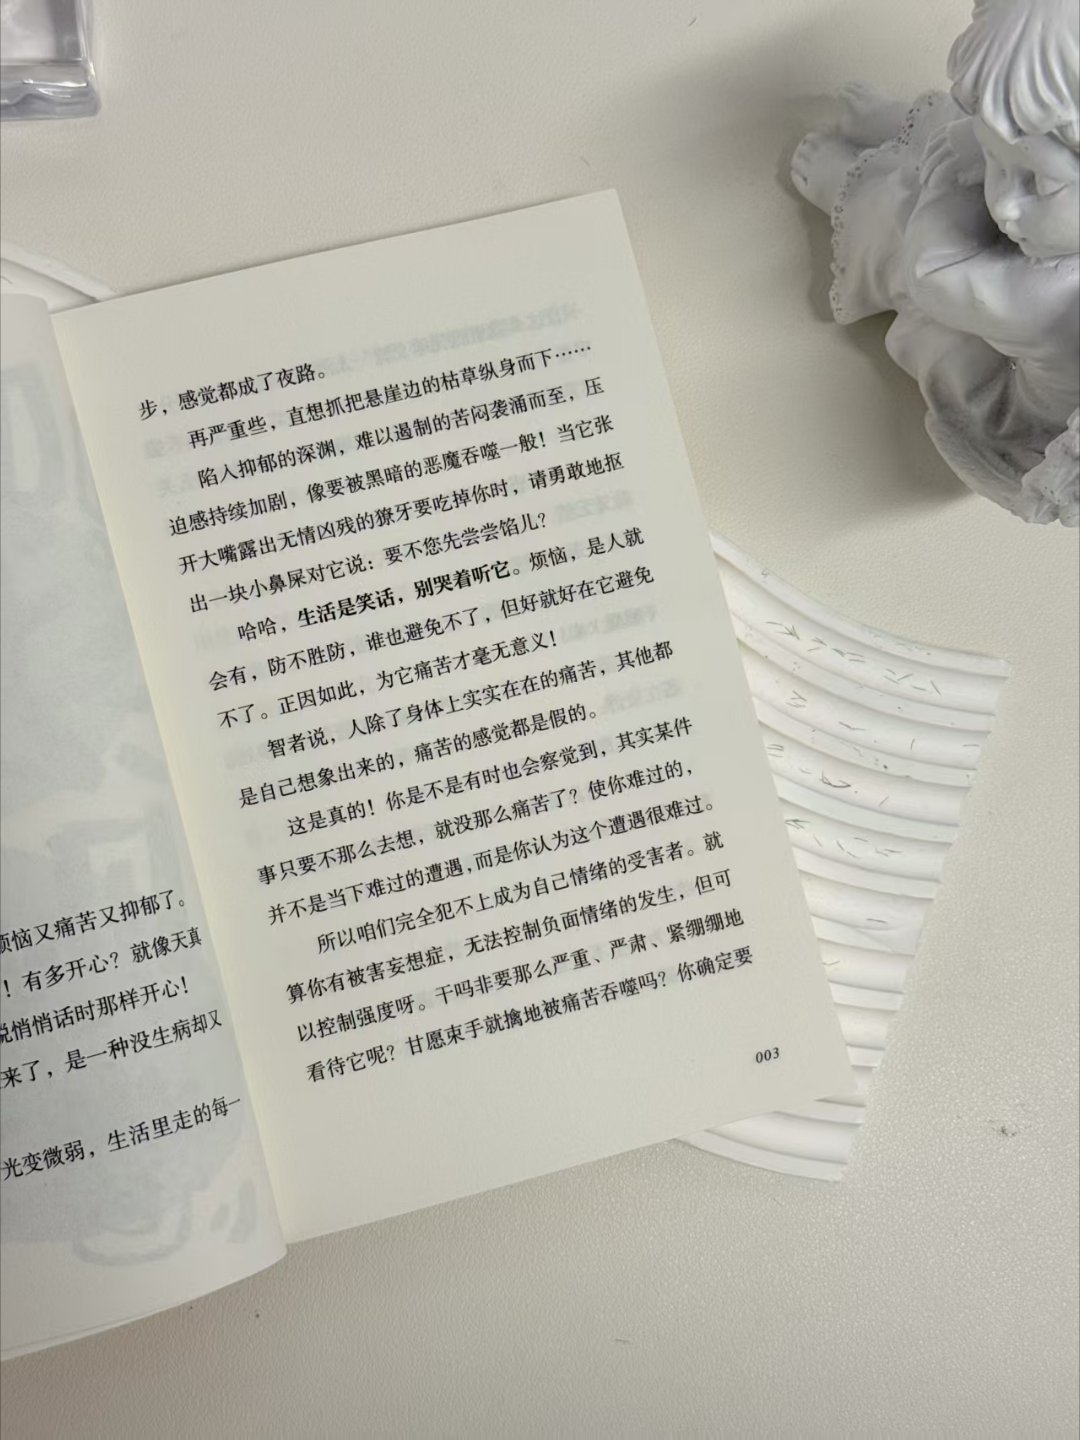 烦恼又痛苦又抑郁了。
！有多开心？就像天真
说悄悄话时那样开心！
来了，是一种没生病却又
光变微弱，生活里走的每一
步，感觉都成了夜路。
再严重些，直想抓把悬崖边的枯草纵身而下……
陷入抑郁的深渊，难以遏制的苦闷袭涌而至，压
迫感持续加剧，像要被黑暗的恶魔吞噬一般！当它张
开大嘴露出无情凶残的獠牙要吃掉你时，请勇敢地抠
出一块小鼻屎对它说：要不您先尝尝馅儿？
哈哈，生活是笑话，别哭着听它。烦恼，是人就
会有，防不胜防，谁也避免不了，但好就好在它避免
不了。正因如此，为它痛苦才毫无意义！
智者说，人除了身体上实实在在的痛苦，其他都
是自己想象出来的，痛苦的感觉都是假的。
这是真的！你是不是有时也会察觉到，其实某件
事只要不那么去想，就没那么痛苦了？使你难过的，
并不是当下难过的遭遇，而是你认为这个遭遇很难过。
所以咱们完全犯不上成为自己情绪的受害者。就
算你有被害妄想症，无法控制负面情绪的发生，但可
以控制强度呀。干吗非要那么严重、严肃、紧绷绷地
看待它呢？甘愿束手就擒地被痛苦吞噬吗？你确定要
003